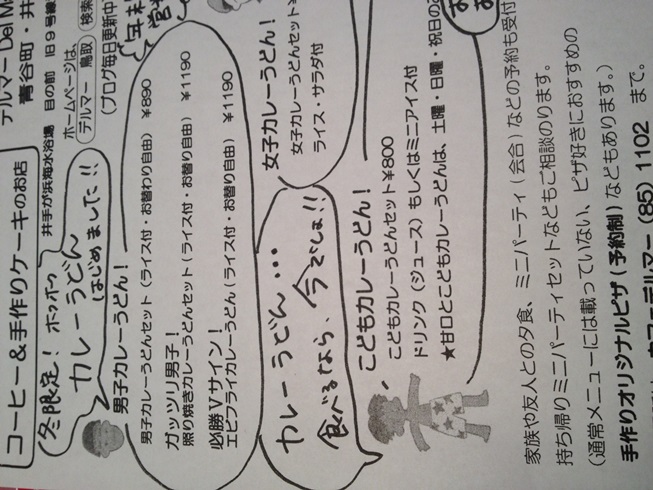 デルマー Del M
青谷町・井
井手が浜海水浴場 目の前 旧9号線
ホームページは
デルマー 鳥取 検索
(ブログ毎日更新中
コーヒー&手作りケーキのお店
冬限定! ホッホッ
カレーうどん
はじめました!!
男子カレーうどん!
男子カレーうどんセット(ライス付・お替わり自由) ¥890
ガッツリ男子!
照り焼きカレーうどんセット(ライス付・お替り自由) ¥1190
必勝Vサイン!
エビフライカレーうどん(ライス付・お替り自由) ¥1190
女子カレーうどん!
女子カレーうどんセット¥
ライス・サラダ付
カレーうどん…
食べるなら、今でしょ!!
こどもカレーうどん!
こどもカレーうどんセット¥800
ドリンク(ジュース)もしくはミニアイス付
★甘口とこどもカレーうどんは、土曜・日曜・祝日の
家族や友人との夕食、ミニパーティ(会合)などの予約も受付
持ち帰りミニパーティセットなどもご相談のります。
(通常メニューには載っていない、ピザ好きにおすすめの
手作りオリジナルピザ(予約制)などもあります。)
カフェデルマー(85)1102 まで。